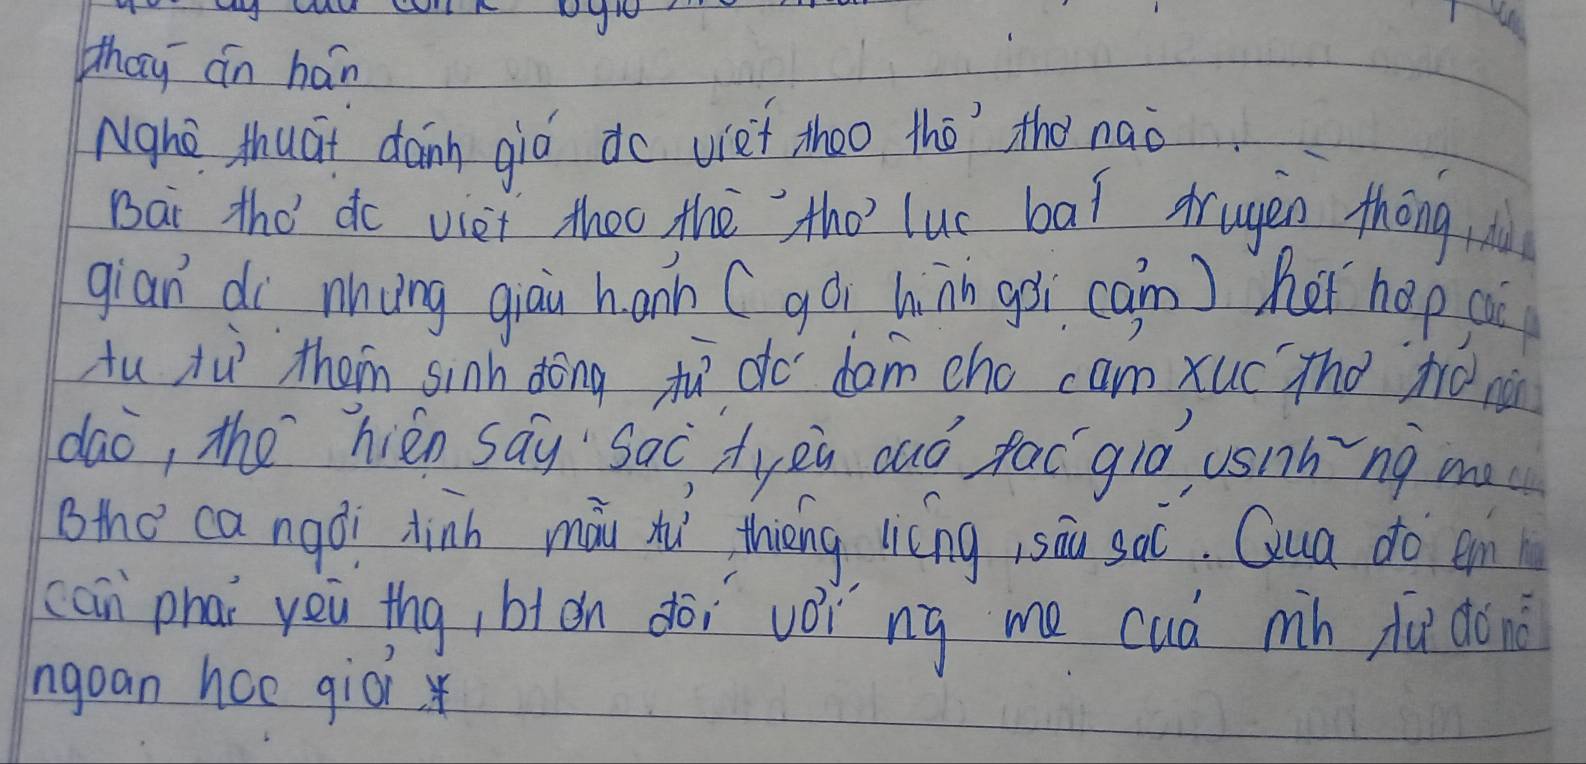 thấy ân hận
Nghệ thuật đánh giá đc viết theo thể thơ nào
Bài thơ đc viết theo thể thơ lục bát truyền thống,
giản dị nhưng giàu h.ảnh (gợi hình gợi cảm) kết hợp các
tu từ thêm sinh động từ đó làm cho cảm xúc thơ trở nên
dào, thể hiện sâu sắc t/yêu cuả tác giả vs nh~ ng mẹ
Bthơ ca ngợi tình mẫu tử thiêng liêng, sâu sắc. Qua đó em
cần phải yêu thg, bt ơn đối với ng mẹ cuả mh từ đó
ngoan học giỏi